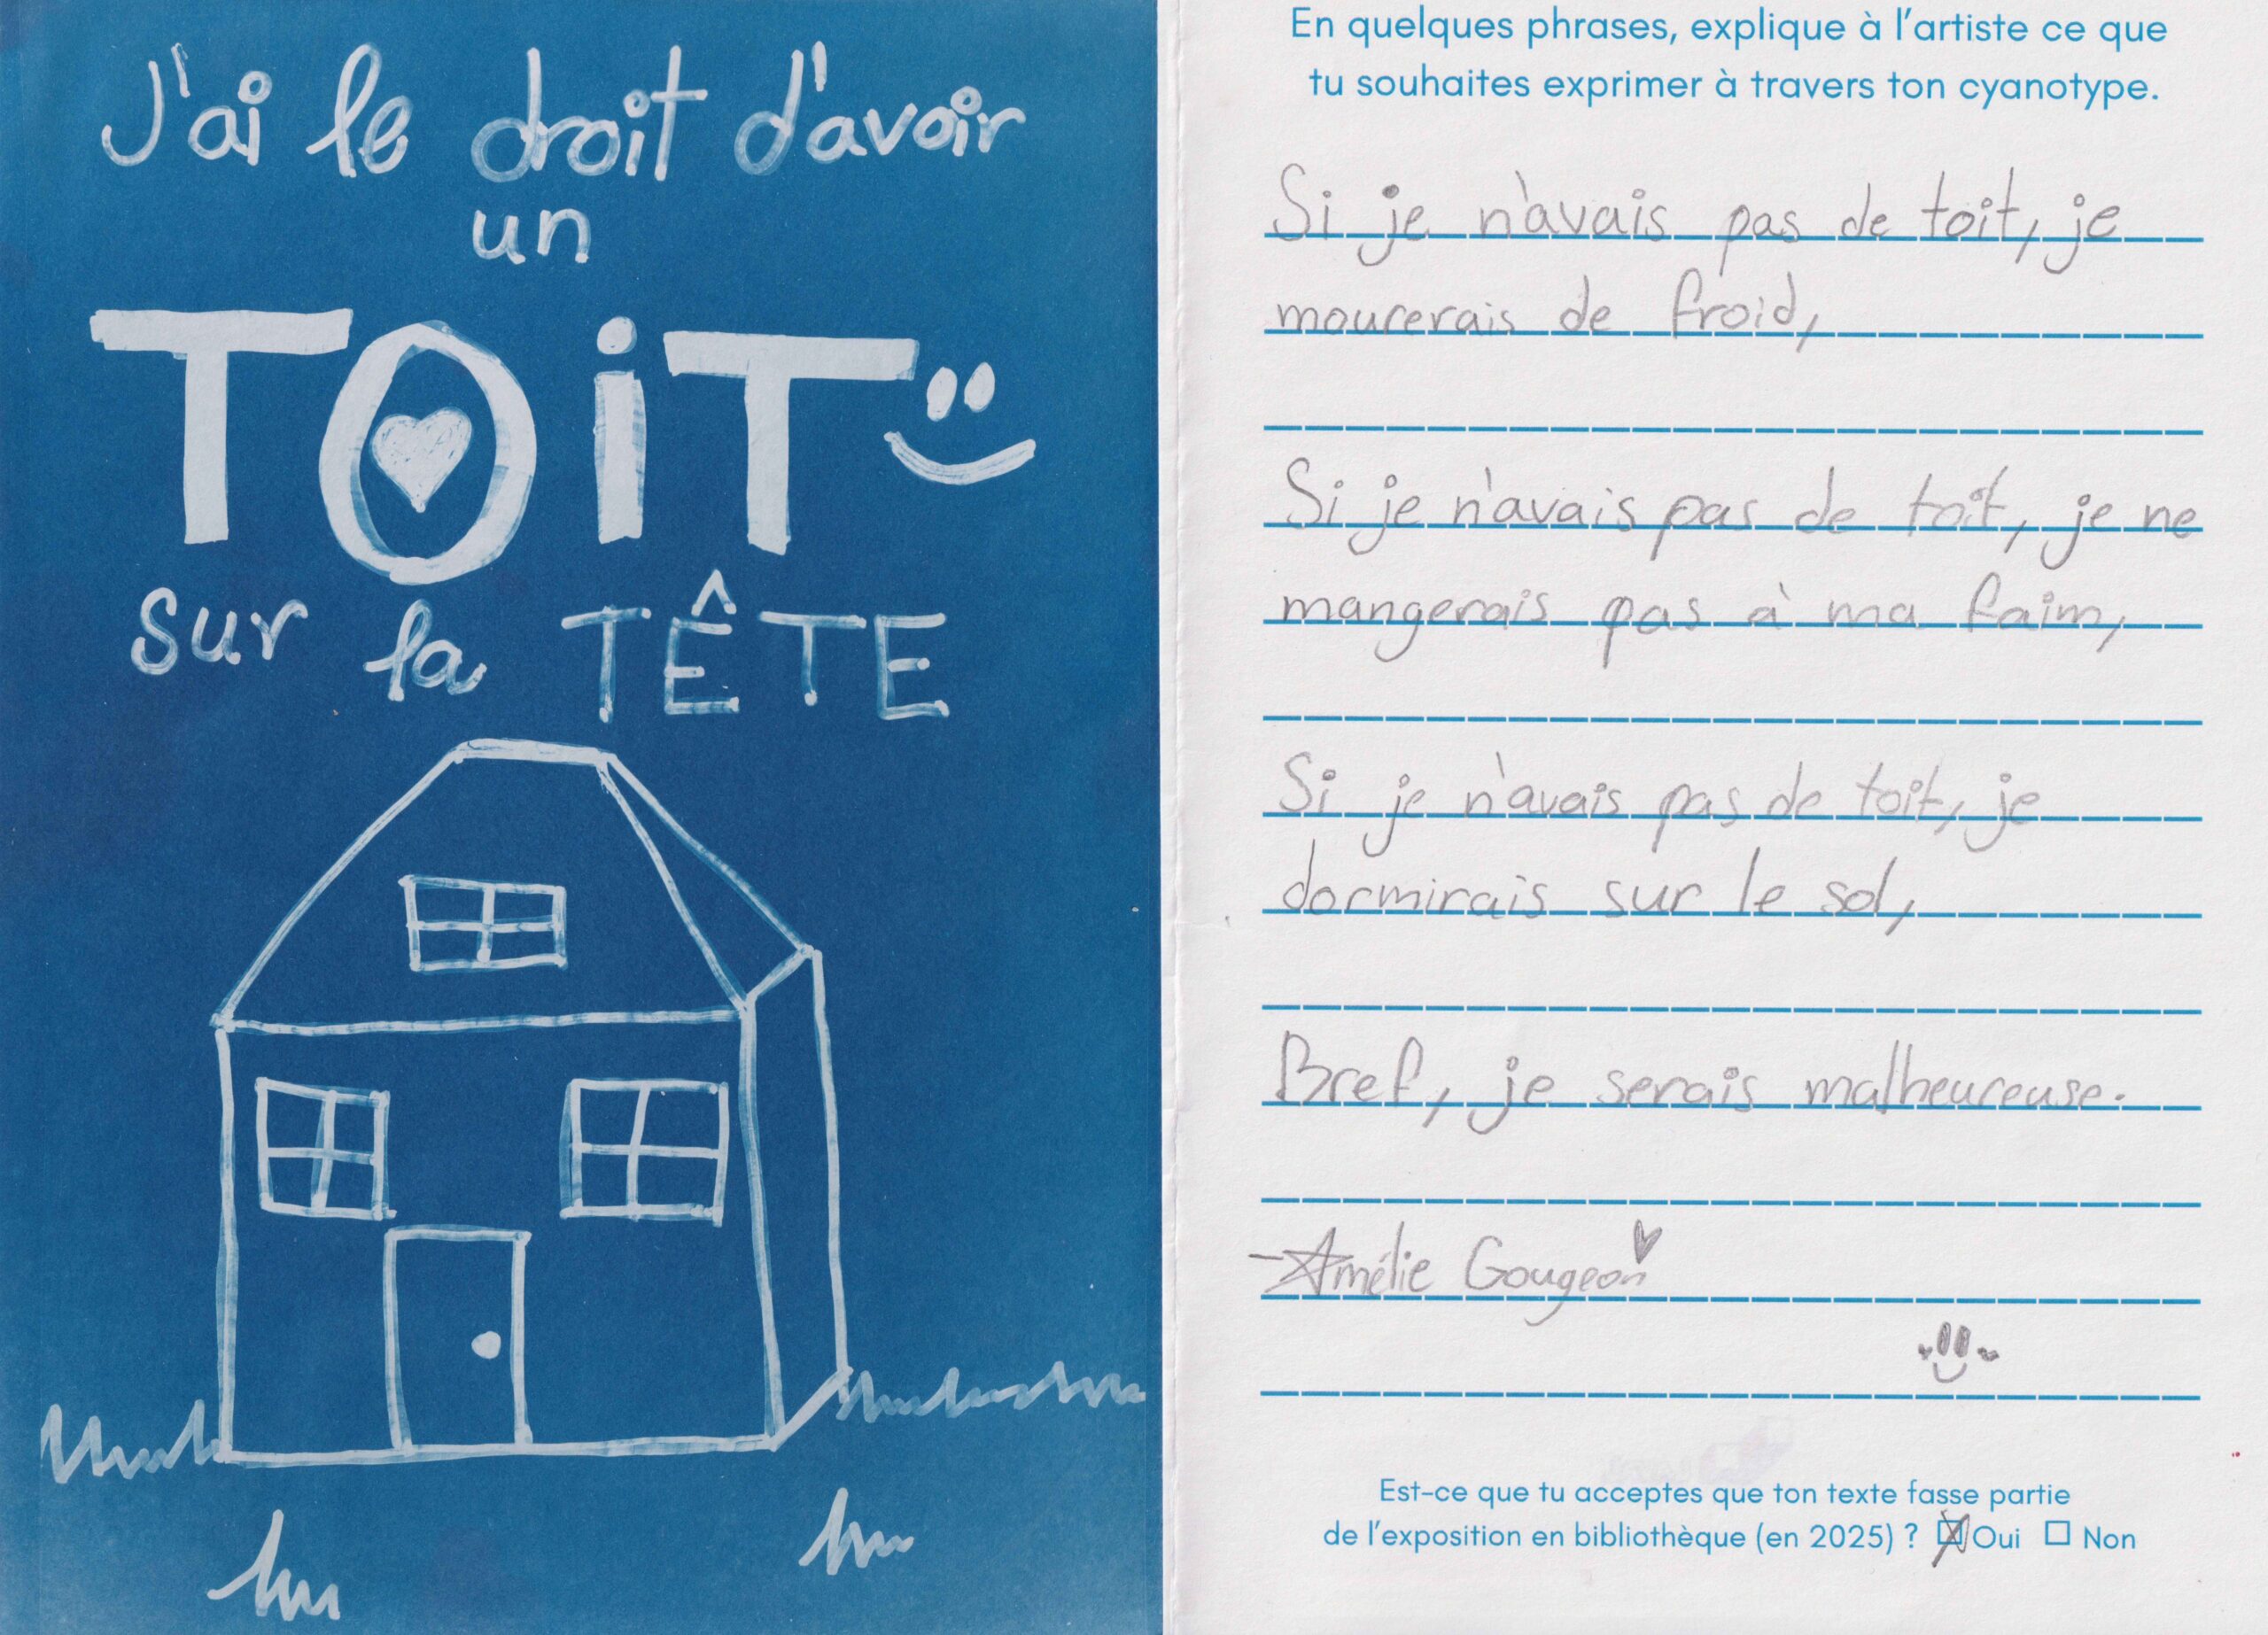 J'ai le droit d'avoir
un
TOiT
sur la TÊTE
En quelques phrases, explique à l'artiste ce que
tu souhaites exprimer à travers ton cyanotype.
Si je n'avais pas de toit, je
mourerais de froid,
Si je n'avais pas de toit, je ne
mangerais pas à ma faim,
Si je n'avais pas de toit, je
dormirais sur le sol,
Bref, je serais malheureuse.
-Amélie Gougeon
Est-ce que tu acceptes que ton texte fasse partie
de l'exposition en bibliothèque (en 2025) ? ☒ Oui ☐ Non